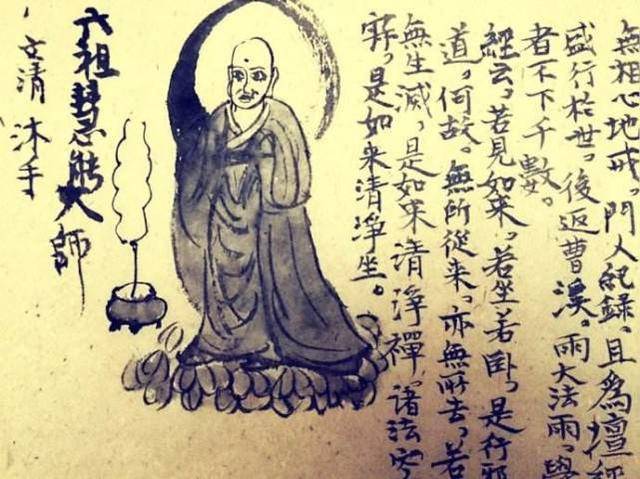 無相心地戒。門人紀錄。且為壇經
盛行於世。後返曹溪。雨大法雨。學
者不下千數。
經云。若見如來。若坐若卧。是行邪
道。何故。無所從來。亦無所去。若
無生滅。是如來清淨禪。諸法空
寂。是如來清淨坐。
六祖慧能大師
文清沐手